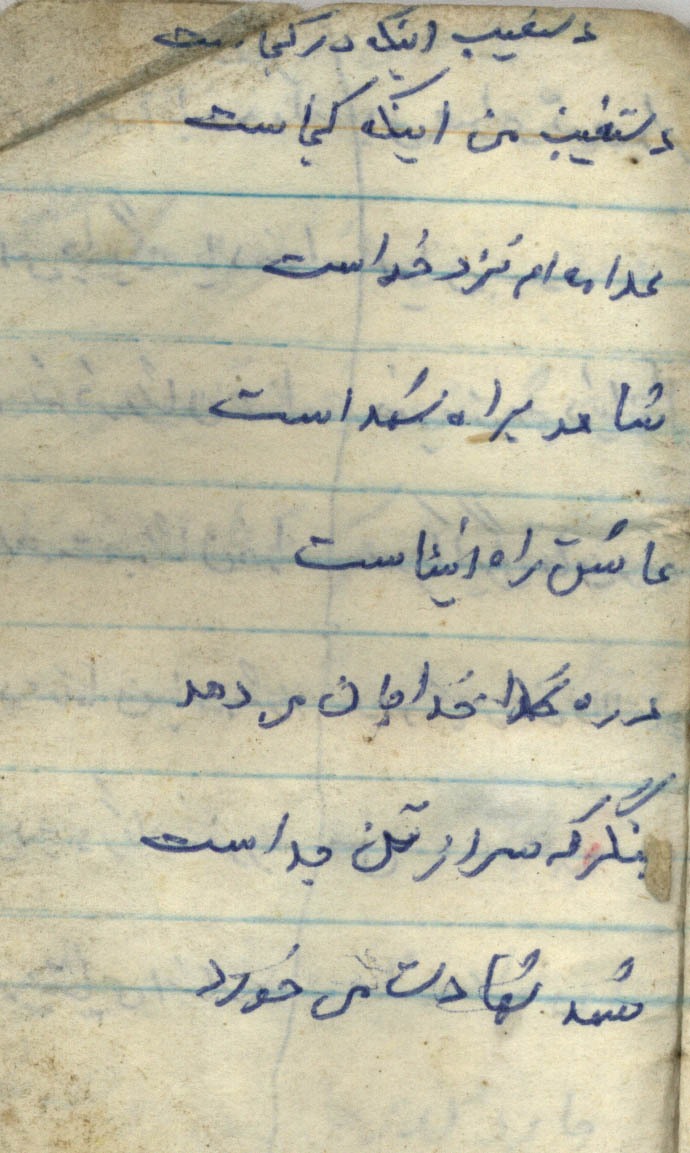 دستغیب اینکه در کجاست
دستغیب من اینکه کجاست
نزد خداست
شاهد براه شهداست
عاشق راه انبیاست
دره خدا جان می دهد
بنگر که سر از تن جداست
شهد شهادت می خورد